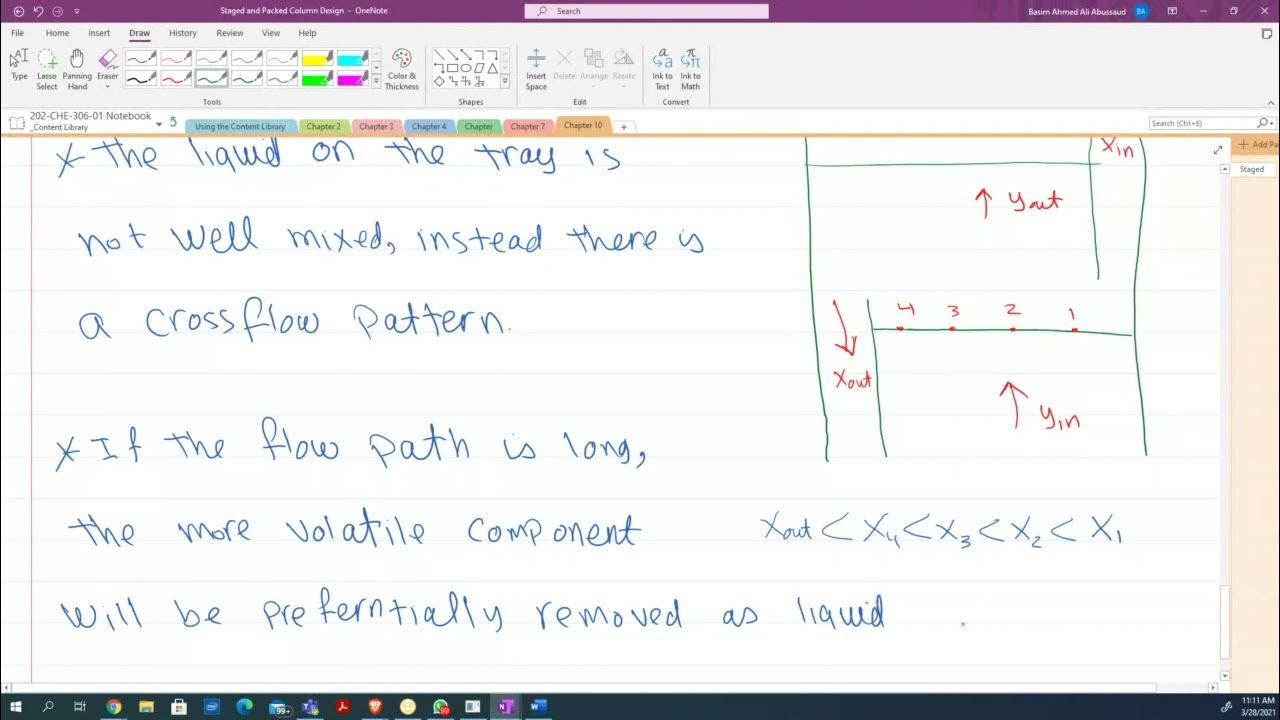 Staged and Packed Column Design - OneNote
Search
Basim Ahmed Ali Abussaud
BA
File Home Insert Draw Review View Help
Type
Lasso Select
Panning Hand
Eraser
Color & Thickness
Insert Space
Delete
Arrange
Rotate
Ink to Text
Ink to Math
Tools
Shapes
Edit
Convert
202-CHE-306-01 Notebook
_Content Library
5
Using the Content Library
Chapter 2
Chapter 3
Chapter 4
Chapter
Chapter 7
Chapter 10
+
Search (Ctrl+E)
+ Add Pa
Staged
* the liquid on the tray is
not well mixed, instead there is
a crossflow pattern.
* If the flow path is long,
the more volatile component
will be prefer​ntially removed as liquid
Xin
↑ yout
4 3 2 1
Xout
↑ yin
Xout < X4 < X3 < X2 < X1
99+
99
11:11 AM
3/28/2021